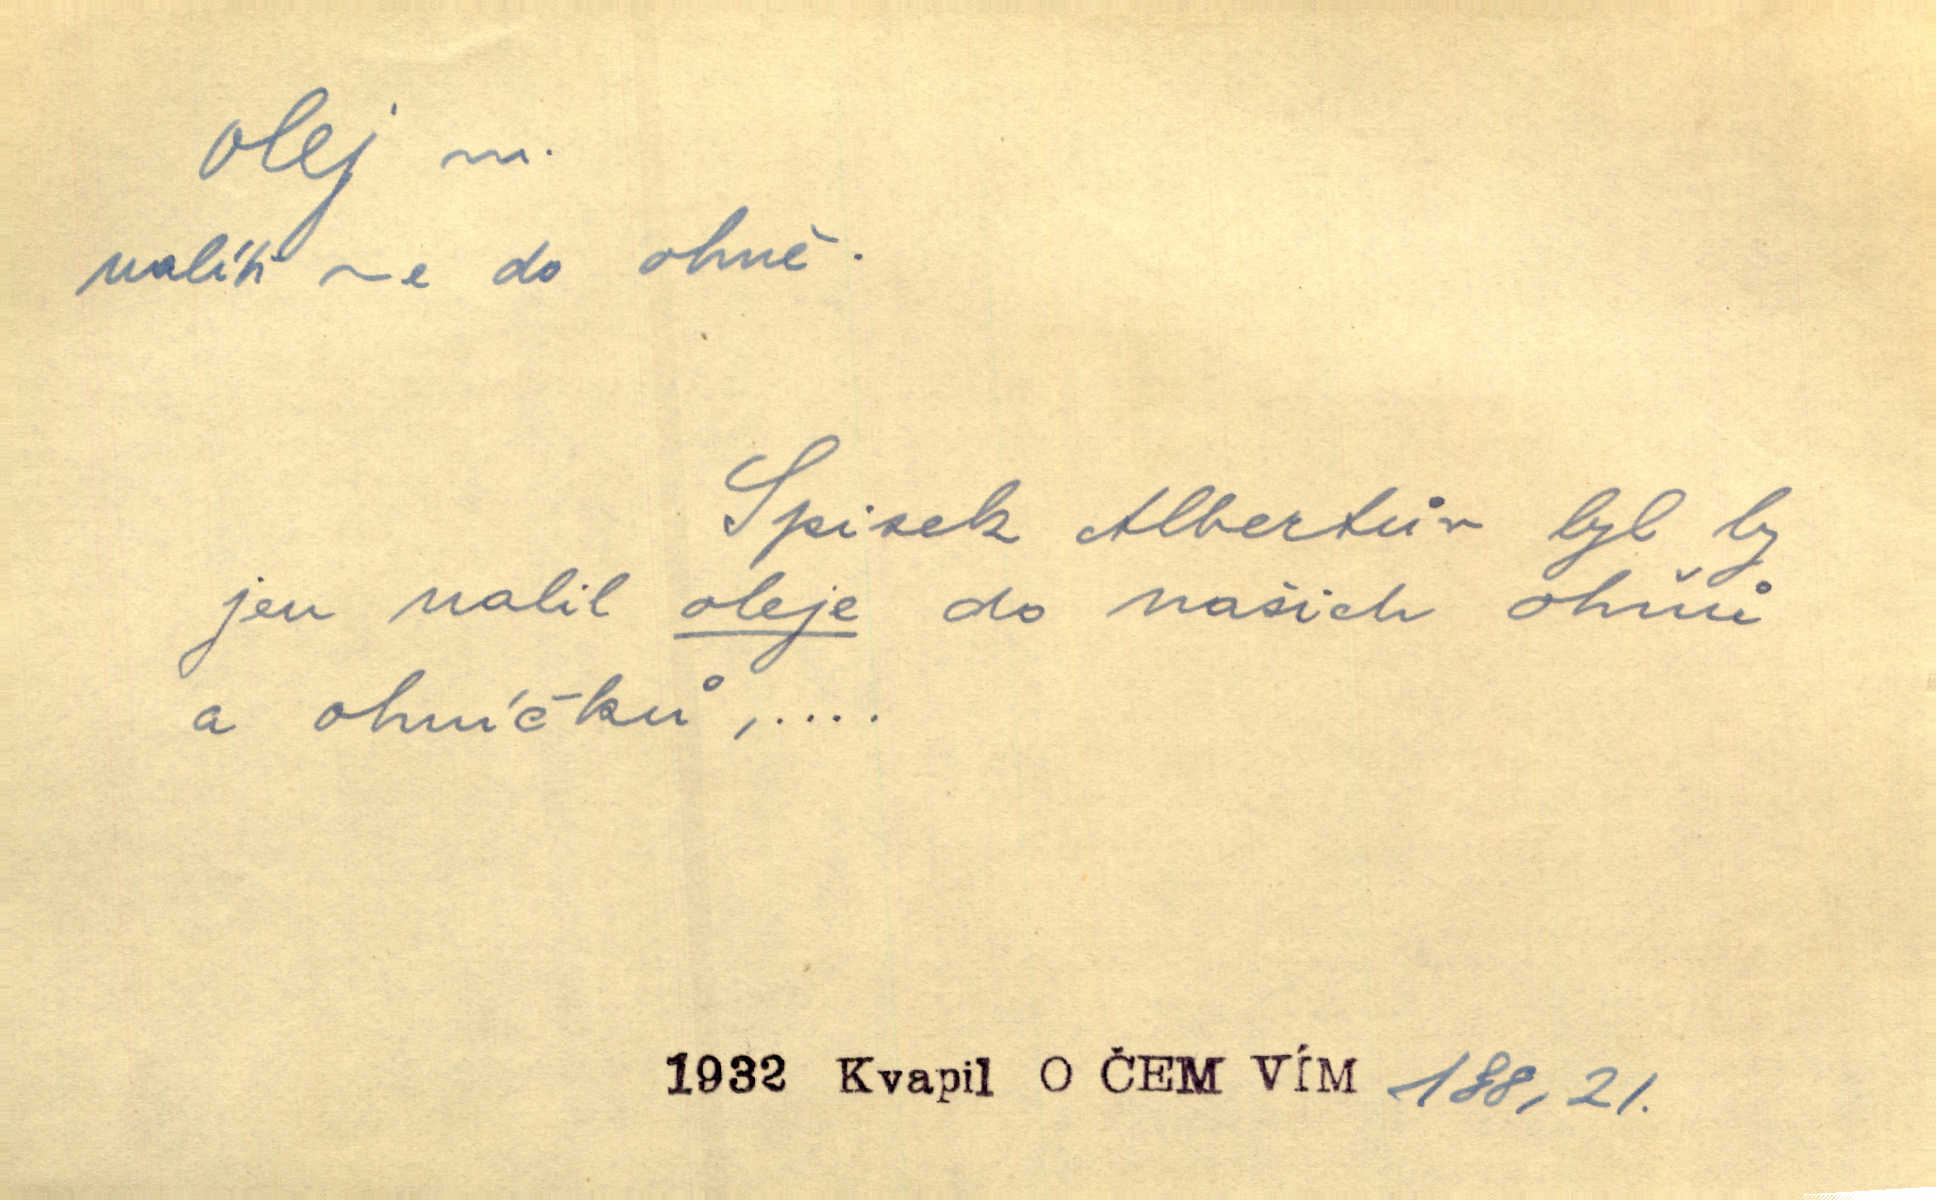 olej m.
nalíti ~e do ohně.
Spisek Albertův byl by
jen nalil oleje do našich ohňů
a ohníčků,....
1932 Kvapil O ČEM VÍM 188, 21.